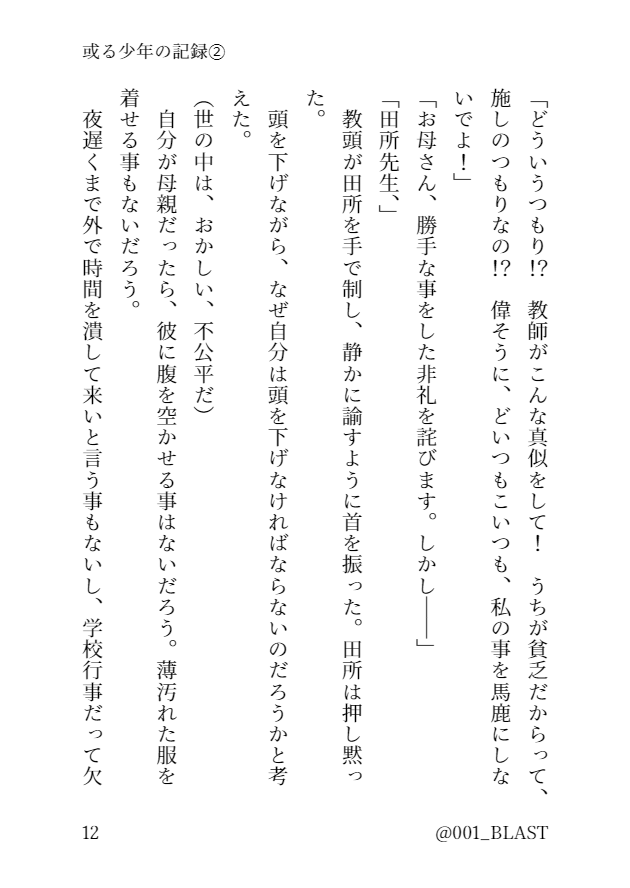 或る少年の記録②
「どういうつもり!?　教師がこんな真似をして！　うちが貧乏だからって、
施しのつもりなの!?　偉そうに、どいつもこいつも、私の事を馬鹿にしな
いでよ！」
「お母さん、勝手な事をした非礼を詫びます。しかし――」
「田所先生、」
　教頭が田所を手で制し、静かに諭すように首を振った。田所は押し黙っ
た。
　頭を下げながら、なぜ自分は頭を下げなければならないのだろうかと考
えた。
（世の中は、おかしい、不公平だ）
　自分が母親だったら、彼に腹を空かせる事はないだろう。薄汚れた服を
着せる事もないだろう。
　夜遅くまで外で時間を潰して来いと言う事もないし、学校行事だって欠
12
@001_BLAST